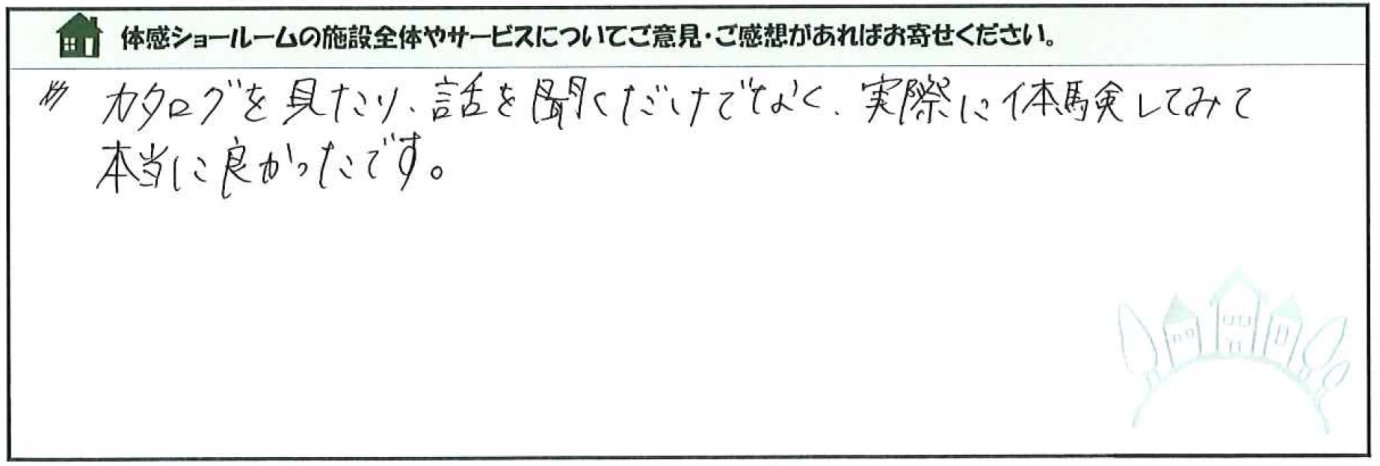 体感ショールームの施設全体やサービスについてご意見・ご感想があればお寄せください。
カタログを見たり、話を聞くだけでなく、実際に体験してみて
本当に良かったです。